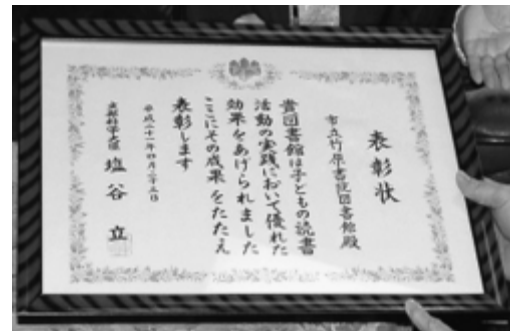 表彰状
市立竹原書院図書館殿
貴図書館は子どもの読書
活動の実践において優れた
効果をあげられました
ここにその成果をたたえ
表彰します
平成二十一年四月二十三日
文部科学大臣 塩谷 立